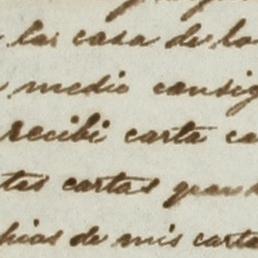 las casa de lo
medio consig
recibi carta ca
tas cartas gran
de mis carta